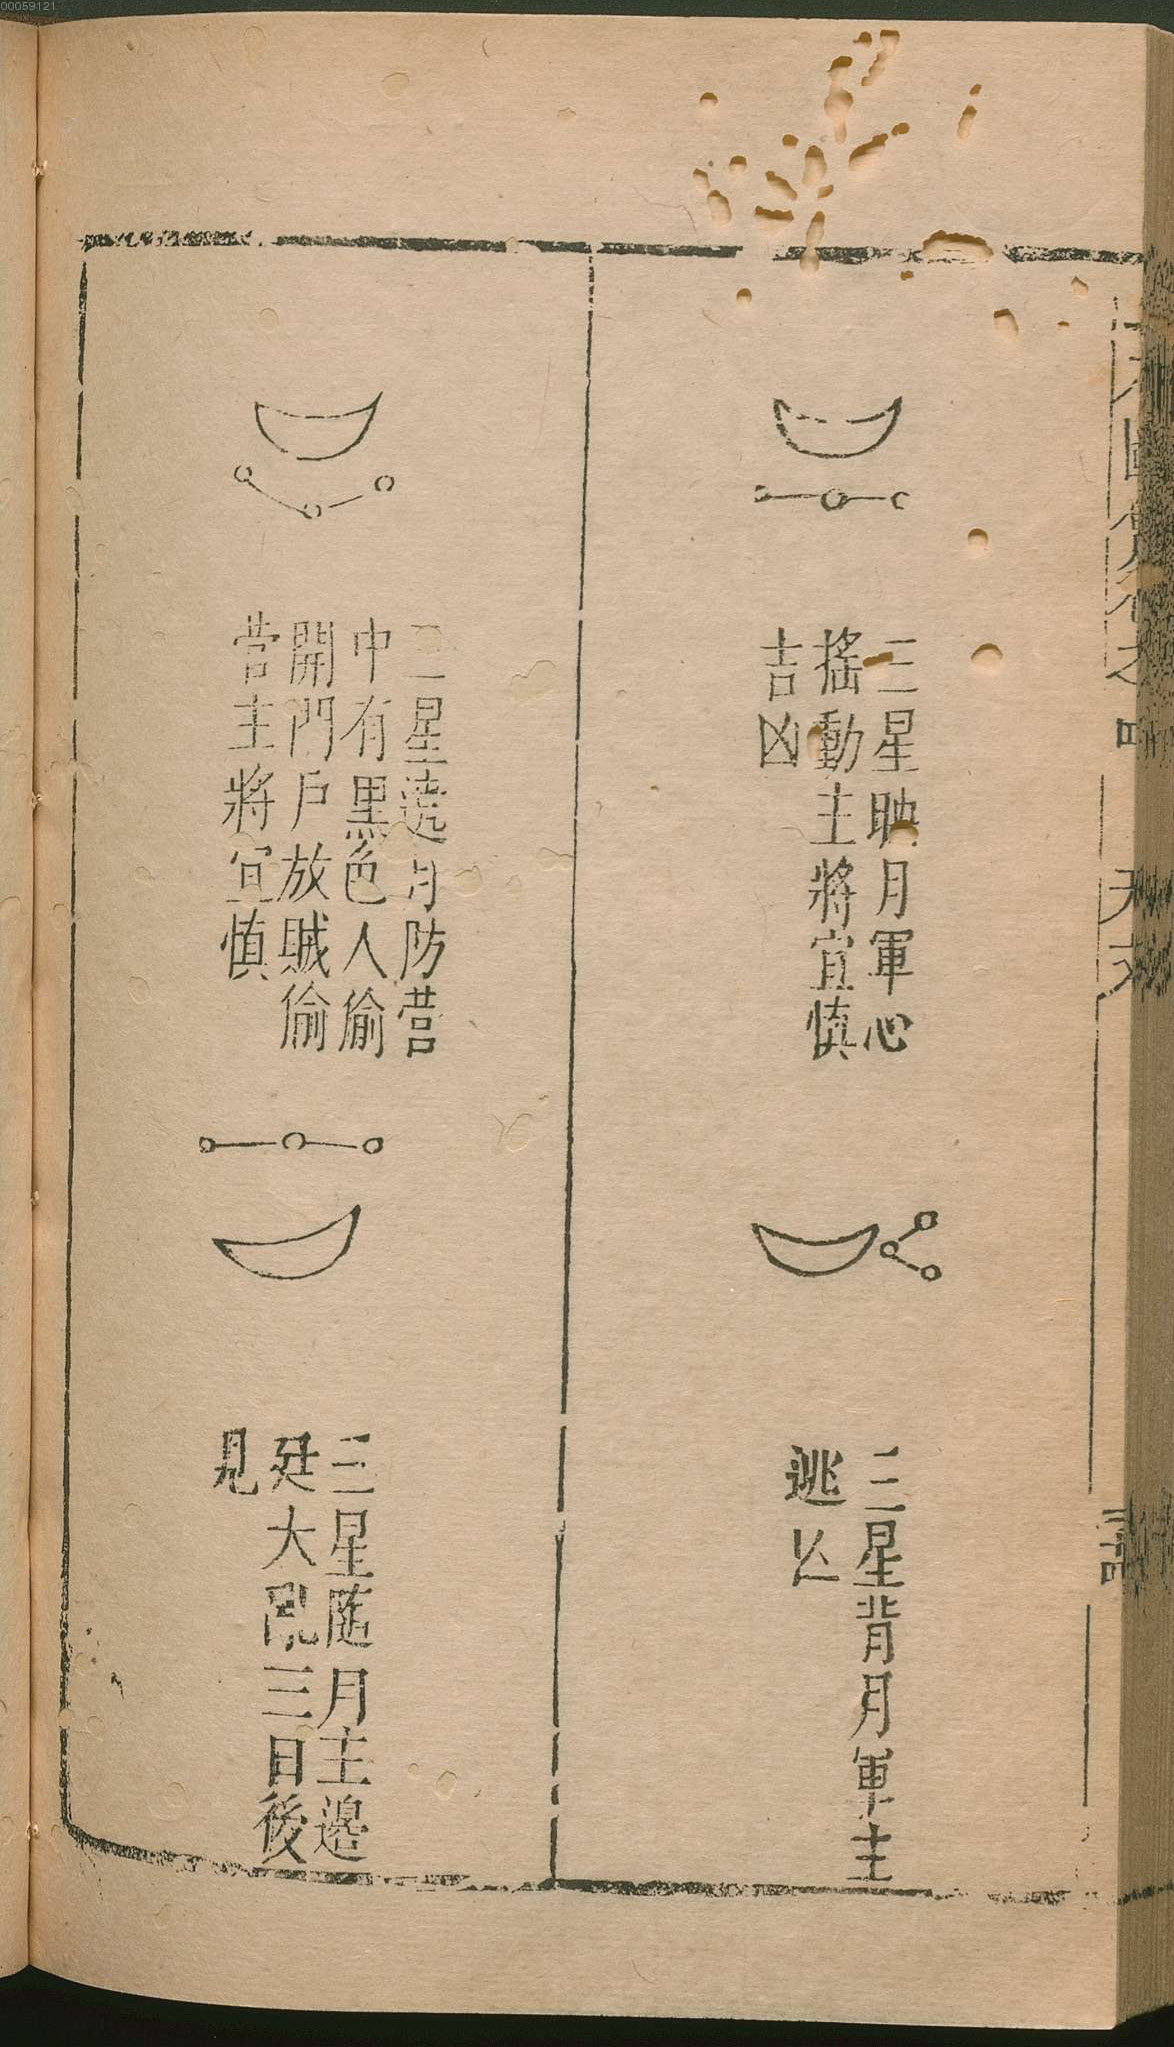 00059121
三星映月軍心
搖動主將宜慎
吉凶
三星背月軍主
逃亡
三星遶月防營
中有黑色人偷
開門戶放賊偷
營主將宜慎
三星隨月主邊
廷大亂三日後
見